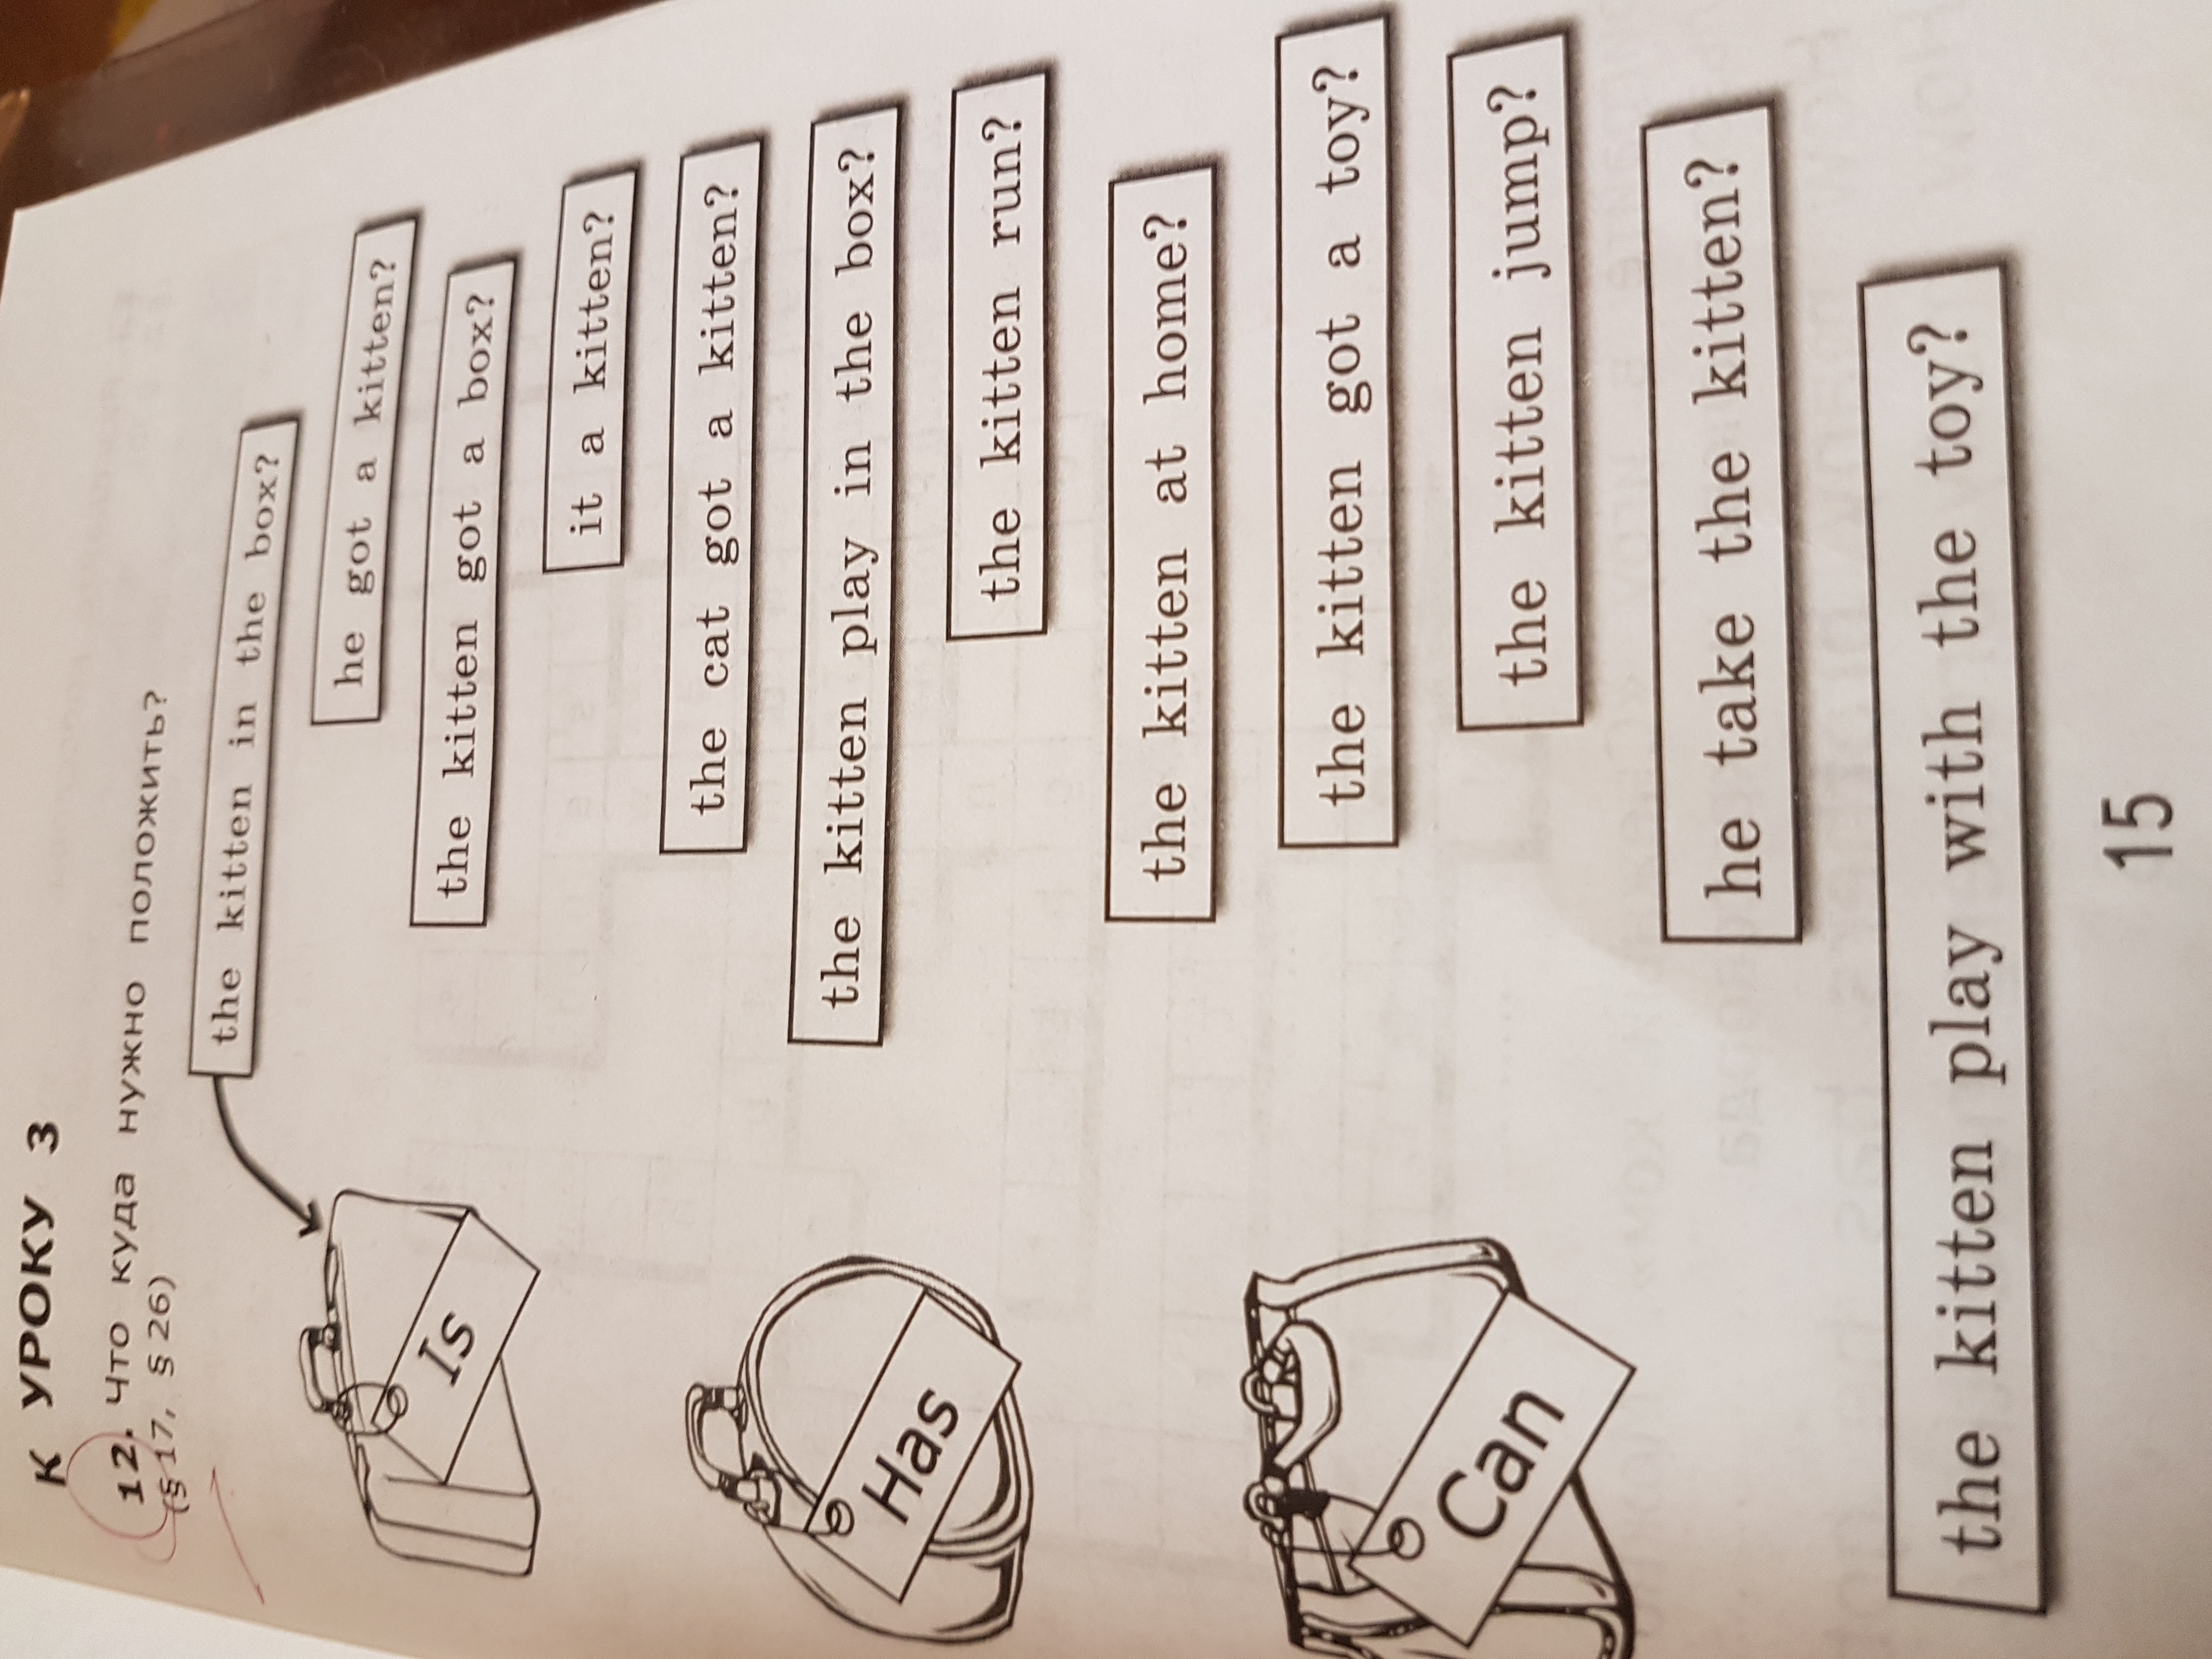 К УРОКУ 3
12. Что куда нужно положить?
(§ 17, § 26)
the kitten in the box?
he got a kitten?
the kitten got a box?
Is
it a kitten?
the cat got a kitten?
the kitten play in the box?
Has
the kitten run?
the kitten at home?
the kitten got a toy?
Can
the kitten jump?
he take the kitten?
the kitten play with the toy?
15